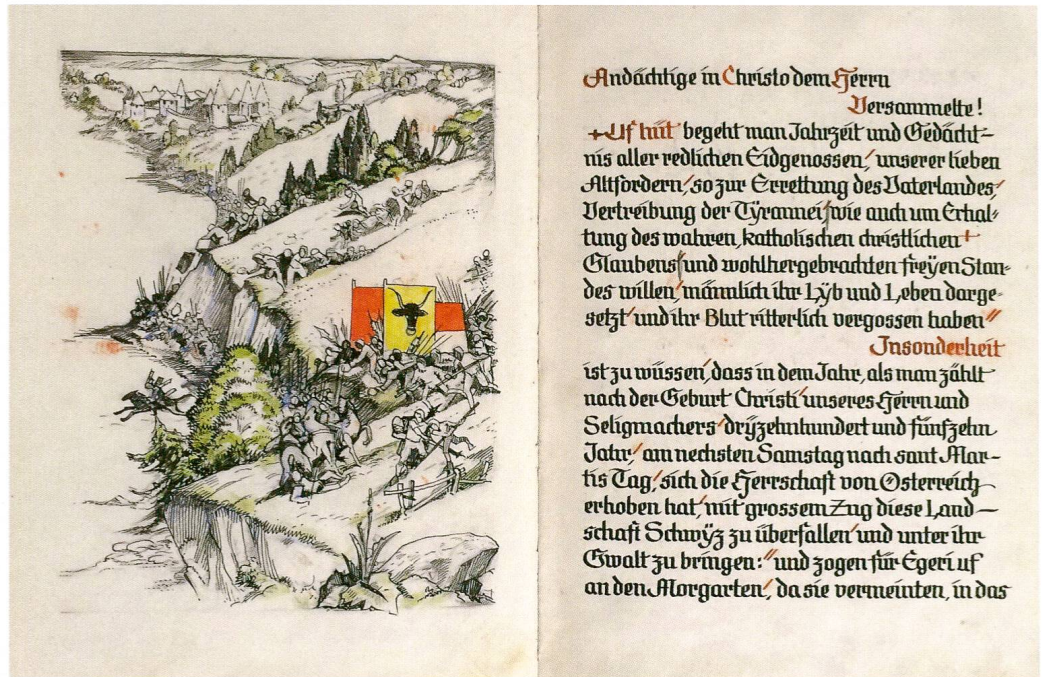 Andächtige in Christo dem Herrn
Versammelte!
+Uf hüt begeht man Jahrzeit und Gedächt-
nis aller redlichen Eidgenossen/ unserer lieben
Altfordern/ so zur Errettung des Vaterlandes/
Vertreibung der Tÿrannei/ wie auch um Erhal-
tung des wahren, katholischen christlichen+
Glaubens/ und wohlhergebrachten freÿen Stan-
des willen/ männlich ihr Lÿb und Leben darge-
setzt/ und ihr Blut ritterlich vergossen haben//
Insonderheit
ist zu wüssen/ dass in dem Jahr, als man zählt
nach der Geburt Christi/ unseres Herrn und
Seligmachers/ drÿzehnhundert und fünfzehn
Jahr/ am nechsten Samstag nach sant Mar-
tis Tag/ sich die Herrschaft von Österreich
erhoben hat/ mit grossem Zug diese Land-
schaft Schwÿz zu überfallen/ und unter ihr
Gwalt zu bringen:// und zogen für Egeri uf
an den Morgarten/, da sie vermeinten, in das